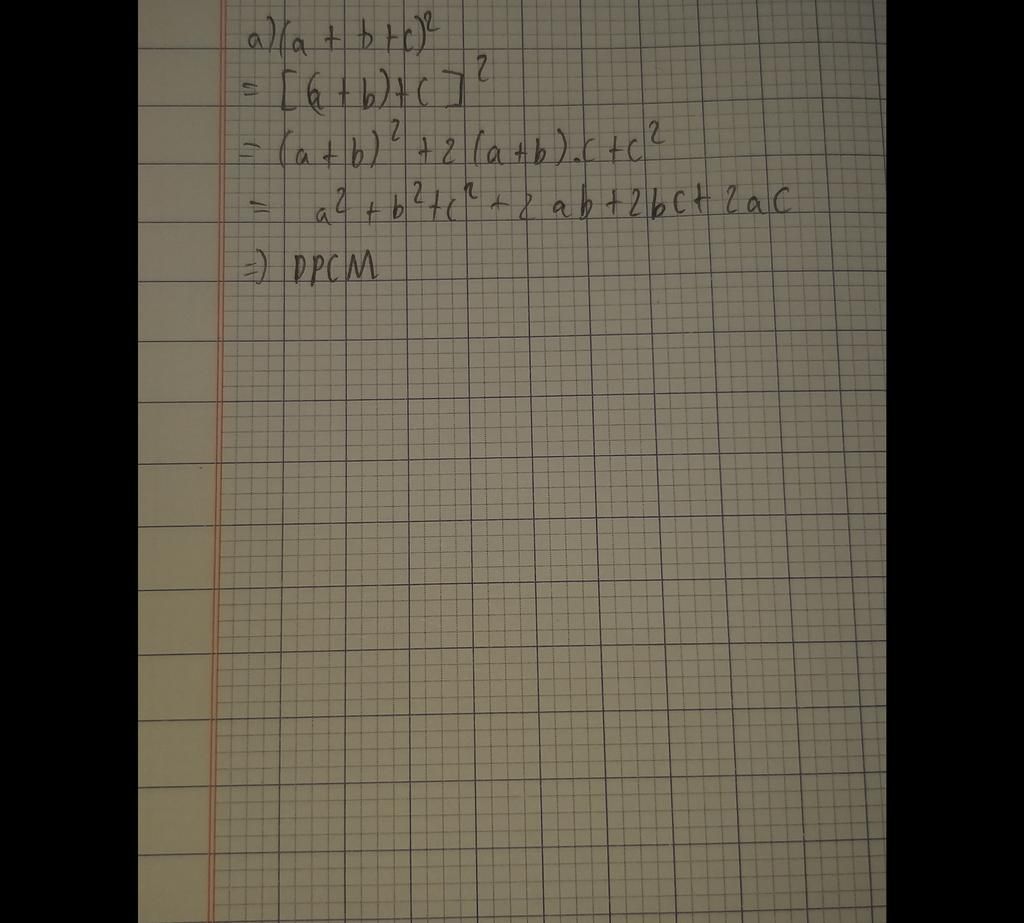 a) (a + b + c)²
= [(a + b) + c]²
= (a + b)² + 2 (a + b).c + c²
= a² + b² + c² + 2ab + 2bc + 2ac
=) DPCM